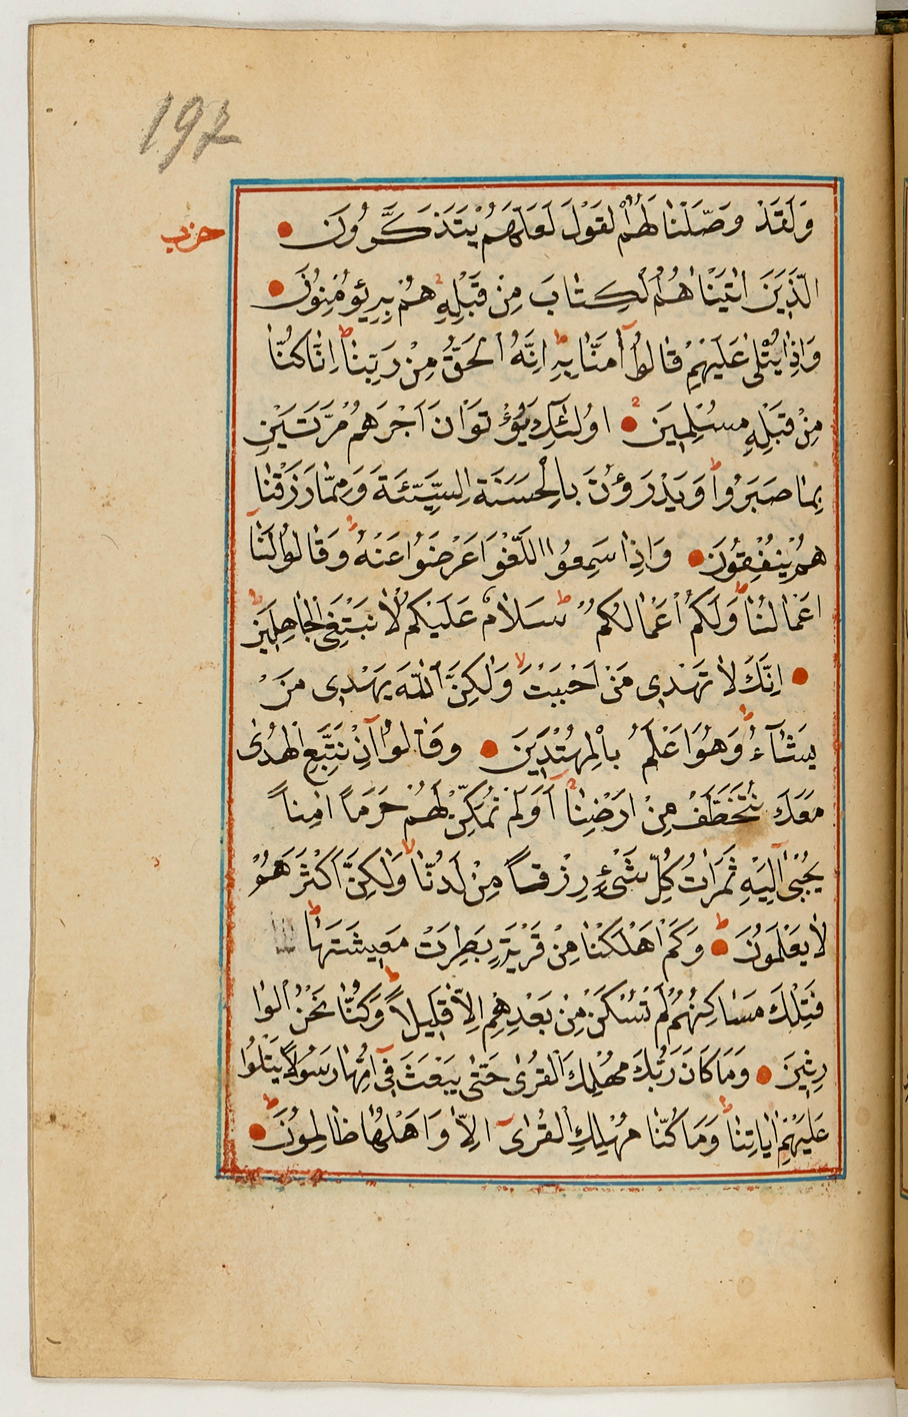 197
حزب
وَلَقَدْ وَصَّلْنَا لَهُمُ لْقَوْلَ لَعَلَّهُمْ يَتَذَكَّرُونَ
الَّذِينَ اٰتَيْنَا هُمُ لْكِتٰابَ مِنْ قَبْلِهِ هُمْ بِهِ يُؤْمِنُونَ
وَاِذَا يُتْلٰى عَلَيْهِمْ قَالُوا اٰمَنَّا بِهِ اِنَّهُ الْحَقُّ مِنْ رَبِّنَا اِنَّا كُنَّا
مِنْ قَبْلِهِ مُسْلِمِينَ اُولٰئِكَ يُؤْتَوْانَ اَجْرَهُمْ مَرَّتَيْنِ
بِمَا صَبَرُوا وَيَدْرَؤُنَ بِالْحَسَنَةِ السَّيِّئَةَ وَمِمَّا رَزَقْنَا
هُمْ يُنْفِقُونَ وَاِذَا سَمِعُوا اللَّغْوَ اَعْرَضُوا عَنْهُ وَقَالُوا لَنَا
اَعْمَالُنَا وَلَكُمْ اَعْمَالُكُمْ سَلَامٌ عَلَيْكُمْ لَا نَبْتَغِى الْجَاهِلِينَ
اِنَّكَ لَا تَهْدِى مَنْ اَحْبَبْتَ وَلٰكِنَّ اللّٰهَ يَهْدِى مَنْ
يَشَٓاءُ وَهُوَ اَعْلَمُ بِالْمُهْتَدِينَ وَقَالُوا اِنْ نَتَّبِعِ الْهُدٰى
مَعَكَ نُتَخَطَّفْ مِنْ اَرْضِنَا اَوَلَمْ نُمَكِّنْ لَهُمْ حَرَمًا اٰمِنًا
يُجْبٰى اِلَيْهِ ثَمَرَاتُ كُلِّ شَىْءٍ رِزْقًا مِنْ لَدُنَّا وَلٰكِنَّ اَكْثَرَهُمْ
لَا يَعْلَمُونَ وَكَمْ اَهْلَكْنَا مِنْ قَرْيَةٍ بَطِرَتْ مَعِيشَتَهَا
فَتِلْكَ مَسَاكِنُهُمْ لَمْ تُسْكَنْ مِنْ بَعْدِهِمْ اِلَّا قَلِيلًا وَكُنَّا نَحْنُ الْوَا
رِثِينَ وَمَا كَانَ رَبُّكَ مُهْلِكَ الْقُرٰى حَتّٰى يَبْعَثَ فِى اُمِّهَا رَسُولًا يَتْلُوا
عَلَيْهِمْ اٰيَاتِنَا وَمَا كُنَّا مُهْلِكِ الْقُرٰى اِلَّا وَاَهْلُهَا ظَالِمُونَ